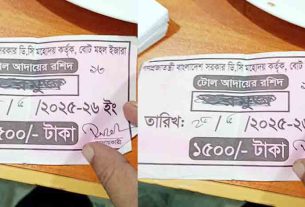 সরকার ডি,সি মহোদয় কর্তৃক, বোট মহল ইজারা
টোল আদায়ের রশিদ
/২০২৫-২৬ ইং
৫০০/- টাকা
গণপ্রজাতন্ত্রী বাংলাদেশ সরকার ডি,সি মহোদয় কর্তৃক, বোট
টোল আদায়ের রশিদ
তারিখ: /২০২৫-২৬
১৫০০/- টাকা